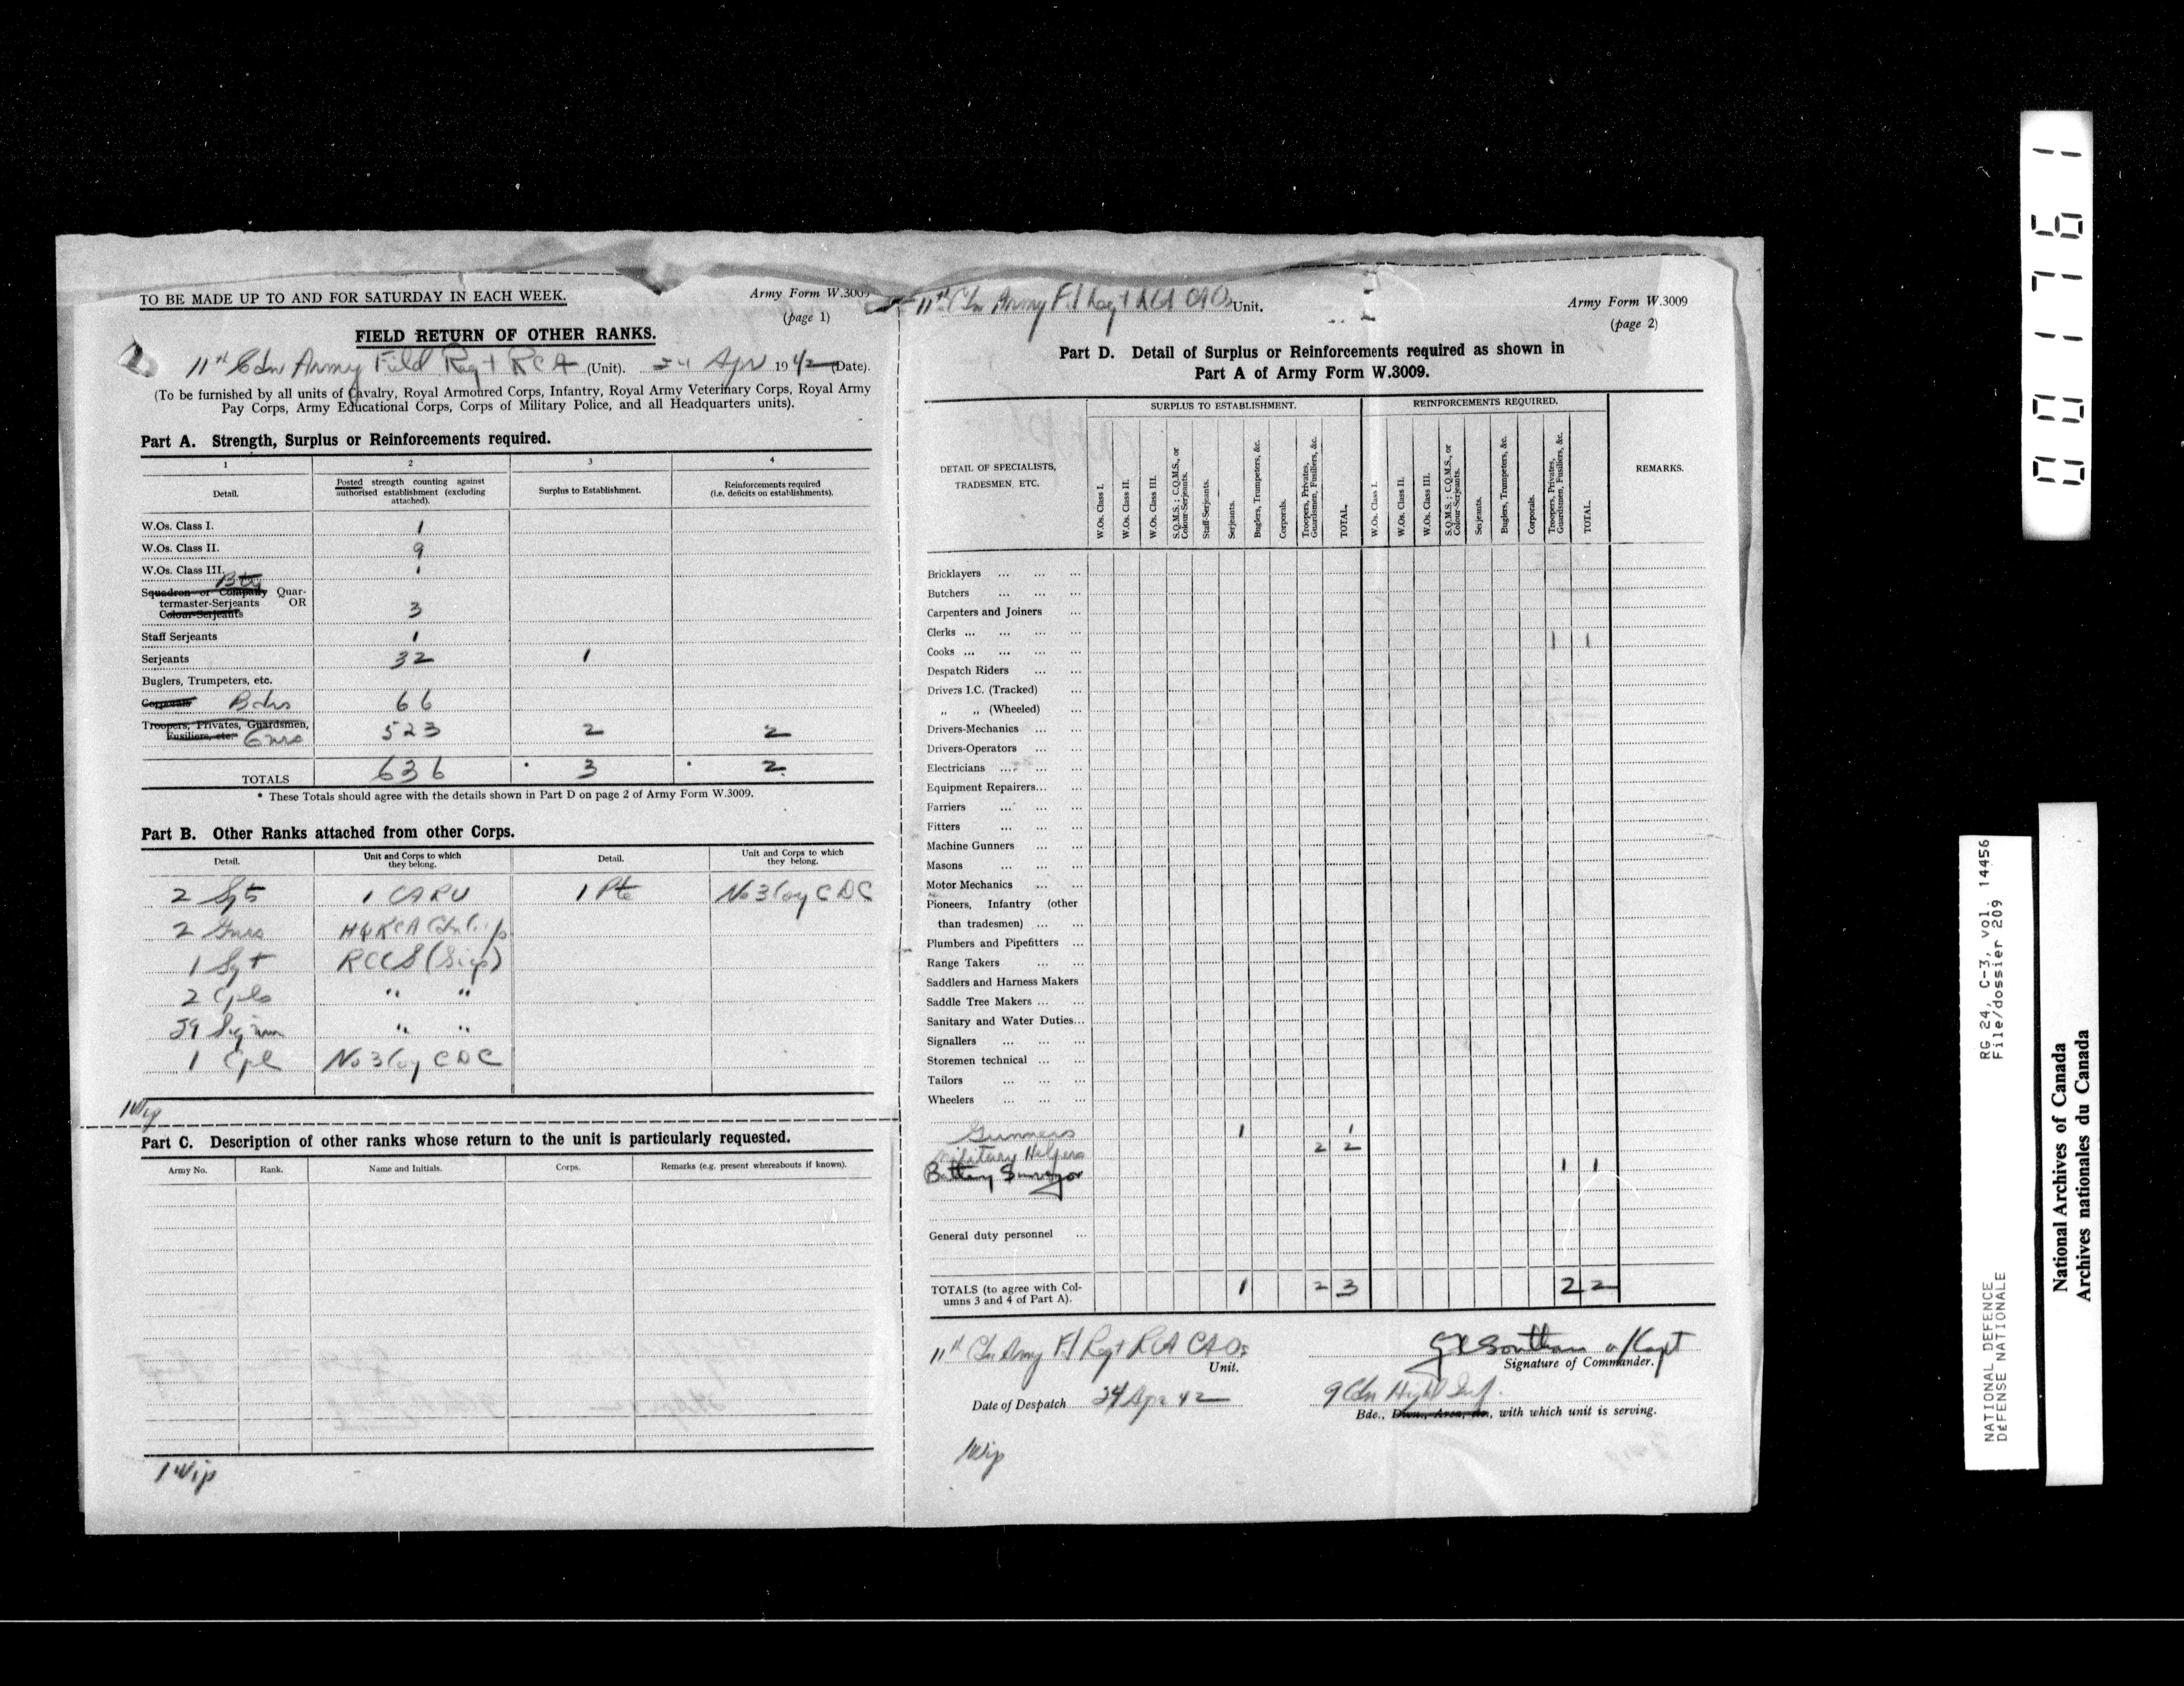 TO BE MADE UP TO AND FOR SATURDAY IN EACH WEEK.
Army Form W.3009
(page 1)
FIELD RETURN OF OTHER RANKS.
11th Cdn Army Field Regt RCA (Unit). 24 Apr 1942 (Date).
(To be furnished by all units of Cavalry, Royal Armoured Corps, Infantry, Royal Army Veterinary Corps, Royal Army
Pay Corps, Army Educational Corps, Corps of Military Police, and all Headquarters units).
Part A. Strength, Surplus or Reinforcements required.
1 2 3 4
Detail. Posted strength counting against authorised establishment (excluding attached). Surplus to Establishment. Reinforcements required (i.e. deficits on establishments).
W.Os. Class I. 1
W.Os. Class II. 9
W.Os. Class III. 1
Bty
Squadron or Company Quar-
termaster-Serjeants OR 3
Colour-Serjeants
Staff Serjeants 1
Serjeants 32 1
Buglers, Trumpeters, etc.
Corporals Bdrs 66
Troopers, Privates, Guardsmen, 523 2 2
Fusiliers, etc. Gnrs
TOTALS 636 * 3 * 2
* These Totals should agree with the details shown in Part D on page 2 of Army Form W.3009.
Part B. Other Ranks attached from other Corps.
Detail. Unit and Corps to which they belong. Detail. Unit and Corps to which they belong.
2 Sgts 1 CARU 1 Pte No 3 Coy CDC
2 Gnrs HQ RCA Cdn
1 Sgt RCCS (Sigs)
2 Cpls " "
39 Sigmn " "
1 Cpl No 3 Coy CDC
Part C. Description of other ranks whose return to the unit is particularly requested.
Army No. Rank. Name and Initials. Corps. Remarks (e.g. present whereabouts if known).
11th Cdn Army Fd Regt RCA CAOs Unit.
Army Form W.3009
(page 2)
Part D. Detail of Surplus or Reinforcements required as shown in
Part A of Army Form W.3009.
DETAIL OF SPECIALISTS, TRADESMEN, ETC.
SURPLUS TO ESTABLISHMENT.
W.Os. Class I.
W.Os. Class II.
W.Os. Class III.
S.Q.M.S.; C.Q.M.S., or Colour-Serjeants.
Staff-Serjeants.
Serjeants.
Buglers, Trumpeters, &c.
Corporals.
Troopers, Privates, Guardsmen, Fusiliers, &c.
TOTAL.
REINFORCEMENTS REQUIRED.
W.Os. Class I.
W.Os. Class II.
W.Os. Class III.
S.Q.M.S.; C.Q.M.S., or Colour-Serjeants.
Serjeants.
Buglers, Trumpeters, &c.
Corporals.
Troopers, Privates, Guardsmen, Fusiliers, &c.
TOTAL.
REMARKS.
Bricklayers ... ... ...
Butchers ... ... ...
Carpenters and Joiners ...
Clerks ... ... ... ... 1 1
Cooks ... ... ... ...
Despatch Riders ... ...
Drivers I.C. (Tracked) ...
" " (Wheeled) ...
Drivers-Mechanics ... ...
Drivers-Operators ... ...
Electricians ... ... ...
Equipment Repairers... ...
Farriers ... ... ...
Fitters ... ... ...
Machine Gunners ... ...
Masons ... ... ...
Motor Mechanics ... ...
Pioneers, Infantry (other
than tradesmen) ... ...
Plumbers and Pipefitters ...
Range Takers ... ...
Saddlers and Harness Makers
Saddle Tree Makers ... ...
Sanitary and Water Duties...
Signallers ... ... ...
Storemen technical ... ...
Tailors ... ... ...
Wheelers ... ... ...
Gunners 1 1
Military Helpers 2 2
Battery Surveyor 1 1
General duty personnel ...
TOTALS (to agree with Col-
umns 3 and 4 of Part A). 1 2 3 2 2
11th Cdn Army Fd Regt RCA CAOs
Unit.
a/Capt
Signature of Commander.
Date of Despatch 24 Apr 42
9 Cdn Highl
Bde., Divn., Area, &c., with which unit is serving.
001761
RG 24, C-3, vol. 14456
File/dossier 209
NATIONAL DEFENCE
DÉFENSE NATIONALE
National Archives of Canada
Archives nationales du Canada